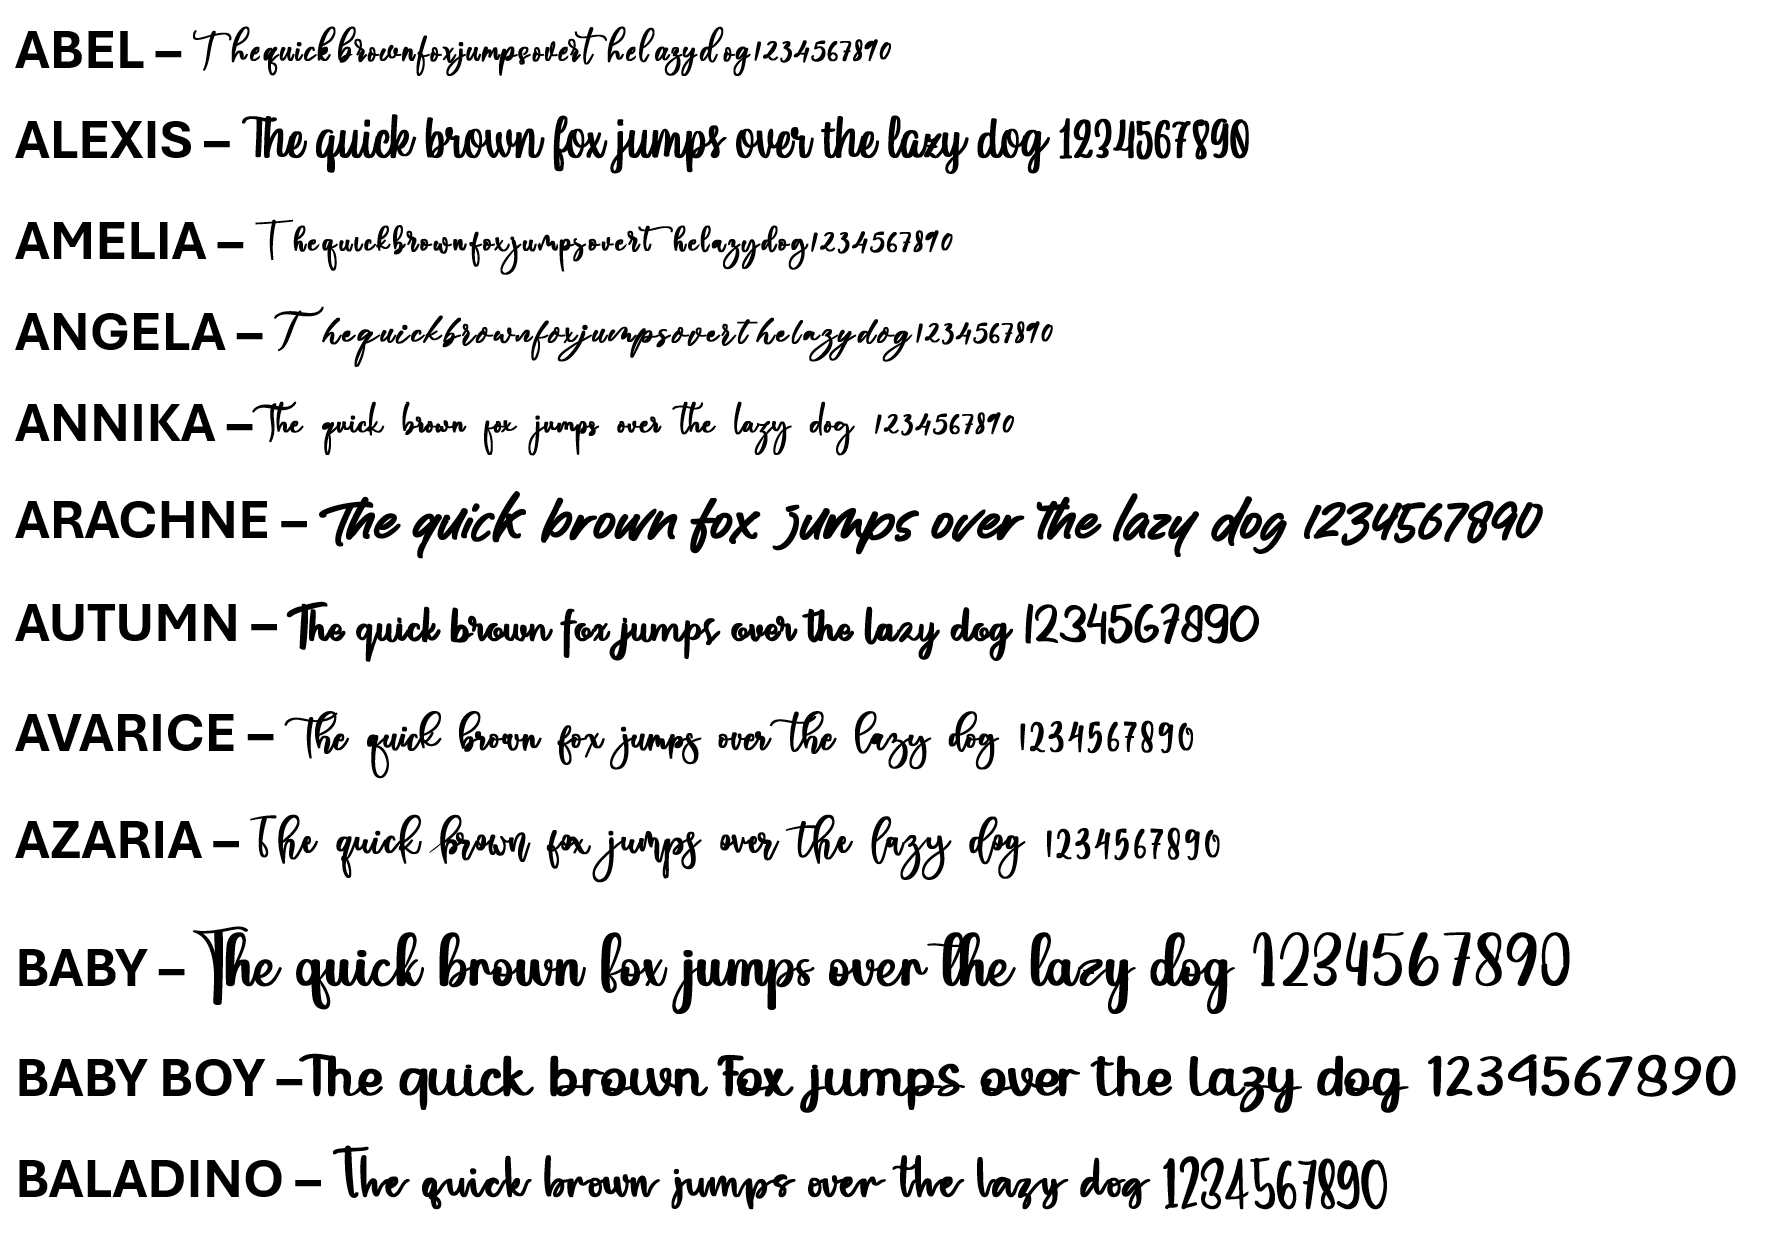 ABEL – Thequickbrownfoxjumpsovert helazydog1234567890
ALEXIS – The quick brown fox jumps over the lazy dog 1234567890
AMELIA – T hequickbrownfoxjumpsovert helazydog1234567890
ANGELA – T hequickbrownfoxjumpsovert helazydog1234567890
ANNIKA –The quick brown fox jumps over the lazy dog 1234567890
ARACHNE – The quick brown fox jumps over the lazy dog 1234567890
AUTUMN – The quick brown fox jumps over the lazy dog 1234567890
AVARICE – The quick brown fox jumps over the lazy dog 1234567890
AZARIA – The quick brown fox jumps over the lazy dog 1234567890
BABY – The quick brown fox jumps over the lazy dog 1234567890
BABY BOY –The quick brown fox jumps over the lazy dog 1234567890
BALADINO – The quick brown jumps over the lazy dog 1234567890